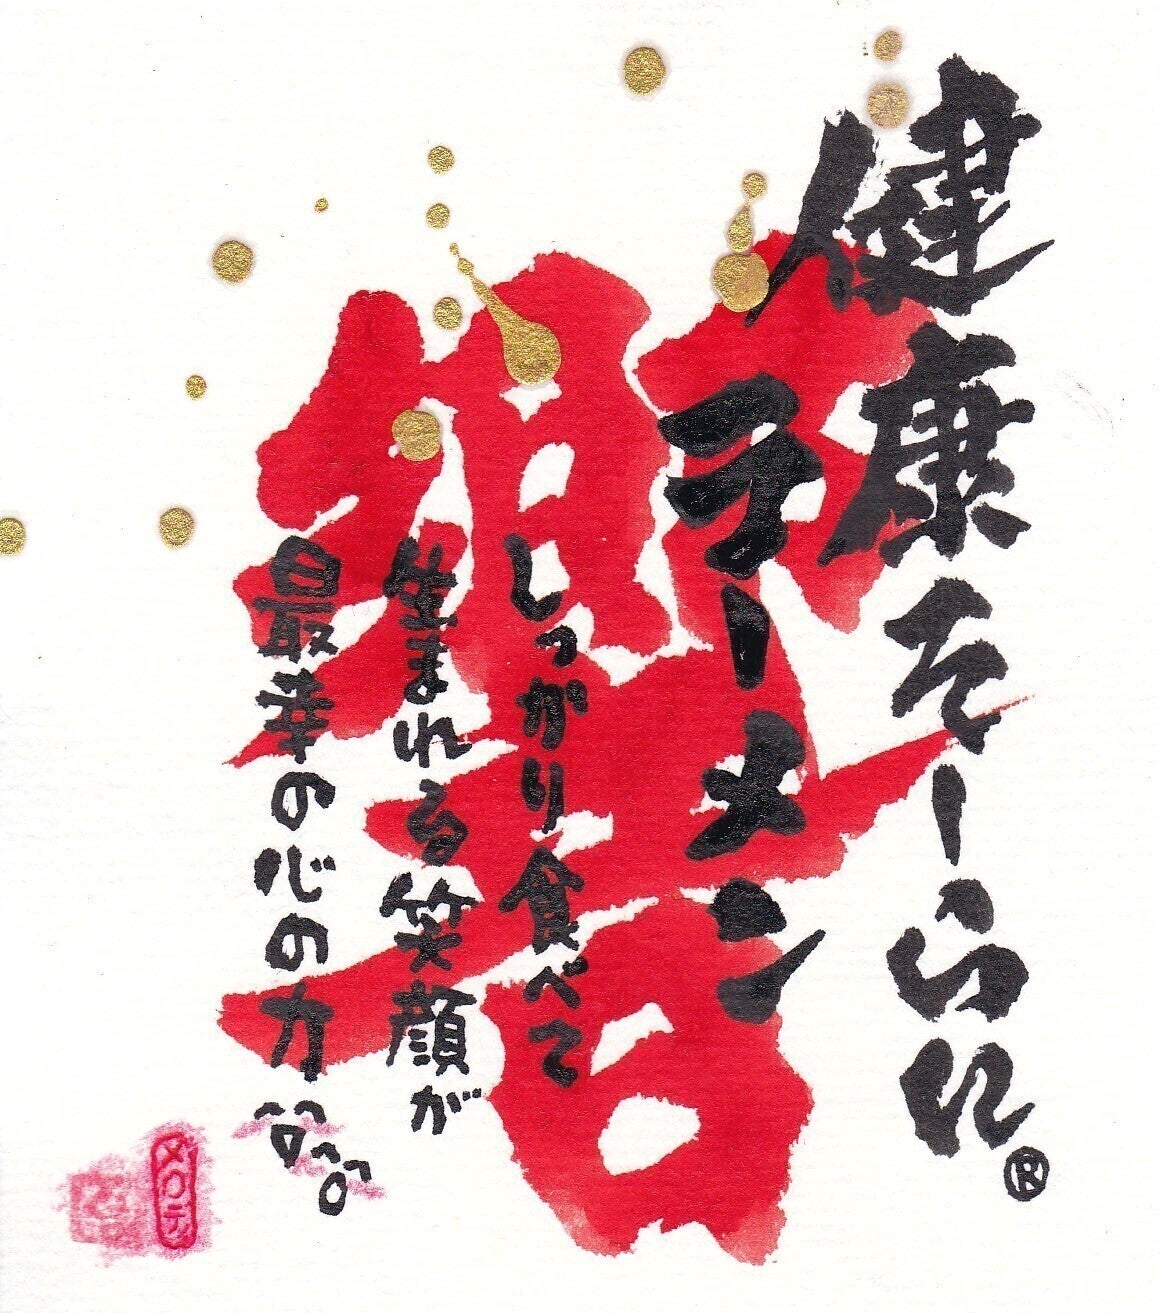 健康そーられ®
ラーメン
しっかり食べて
生まれる笑顔が
最幸の心の力